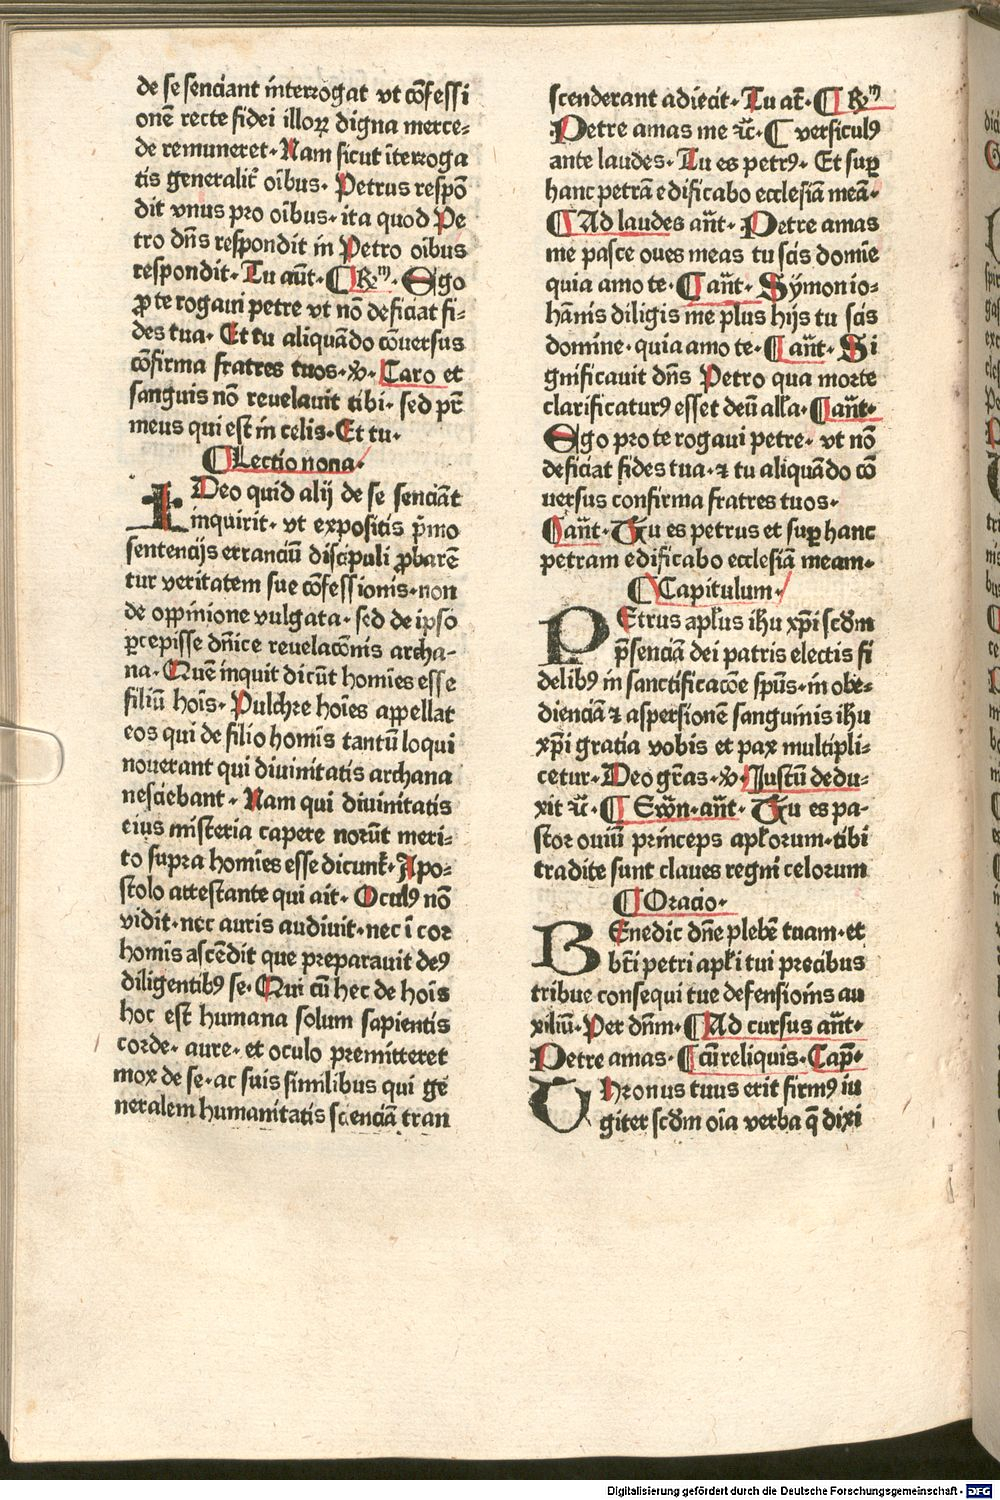 de se senciant interrogat vt cōfessi
onē recte fidei illoꝝ digna merce⸗
de remuneret· Nam sicut īterroga
tis generalit̄ oībus· Petrus respō
dit vnus pro oībus· ita quod Pe
tro dn̄s respondit in Petro oībus
respondit· Tu aūt· ¶ R̄m̄· Ego
ꝓ te rogaui petre vt nō deficiat fi⸗
des tua· Et tu aliquādo cōuersus
cōfirma fratres tuos· ꝟ· Caro et
sanguis nō reuelauit tibi· sed pr̄
meus qui est in celis· Et tu·
¶ Lectio nona·
IDeo quid alij de se senciāt
inquirit· vt expositis p̄mo
sentencijs erranciū discipuli ꝓbarē
tur veritatem sue cōfessionis· non
de oppinione vulgata· sed de ipso
ꝑcepisse dn̄ice reuelacōnis archa⸗
na· Quē inquit dicūt homīes esse
filiū hoīs· Pulchre hoīes appellat
eos qui de filio homīs tantū loqui
nouerant qui diuinitatis archana
nesciebant· Nam qui diuinitatis
eius misteria capere norūt meri⸗
to supra homīes esse dicunt̄· Apo⸗
stolo attestante qui ait· Oculꝰ nō
vidit· nec auris audiuit· nec ī cor
homīs ascēdit que preparauit deꝰ
diligentibꝰ se· Qui cū hec de hoīs
hoc est humana solum sapientis
corde· aure· et oculo premitteret
mox de se· ac suis similibus qui ge
neralem humanitatis scienciā tran
scenderant adiecit· Tu at̄· ¶ R̄m̄
Petre amas me ⁊c̄· ¶ versiculꝰ
ante laudes· Tu es petrꝰ· Et suꝑ
hanc petrā edificabo ecclesiā meā·
¶ Ad laudes an̄t· Petre amas
me pasce oues meas tu scis domīe
quia amo te· ¶ an̄t· Symon io⸗
hannis diligis me plus hijs tu scis
domine· quia amo te· ¶ an̄t· Si
gnificauit dn̄s Petro qua morte
clarificaturꝰ esset deū alla· ¶ an̄t·
Ego pro te rogaui petre· vt nō
deficiat fides tua· ⁊ tu aliquādo cō
uersus confirma fratres tuos·
¶ an̄t· Tu es petrus et suꝑ hanc
petram edificabo ecclesiā meam·
¶ Capitulum·
PEtrus apl̄us ihū xp̄i scd̄m
p̄senciā dei patris electis fi
delibꝰ in sanctificacōe sp̄us· in obe⸗
dienciā ⁊ aspersionē sanguinis ihū
xp̄i gratia vobis et pax multipli⸗
cetur· Deo gr̄as· ꝟ· Justū dedu⸗
xit ⁊c̄· ¶ Ewn̄· an̄t· Tu es pa⸗
stor ouiū princeps apl̄orum· tibi
tradite sunt claues regni celorum
¶ Oracio·
BEnedic dn̄e plebē tuam· et
bt̄i petri apl̄i tui precibus
tribue consequi tue defensionis au
xiliū· Per dn̄m· ¶ Ad cursus an̄t·
Petre amas· ¶ cū reliquis· Cap̄·
THronus tuus erit firmꝰ iu
giter scd̄m oīa verba q̄ dixi
Digitalisierung gefördert durch die Deutsche Forschungsgemeinschaft · DFG